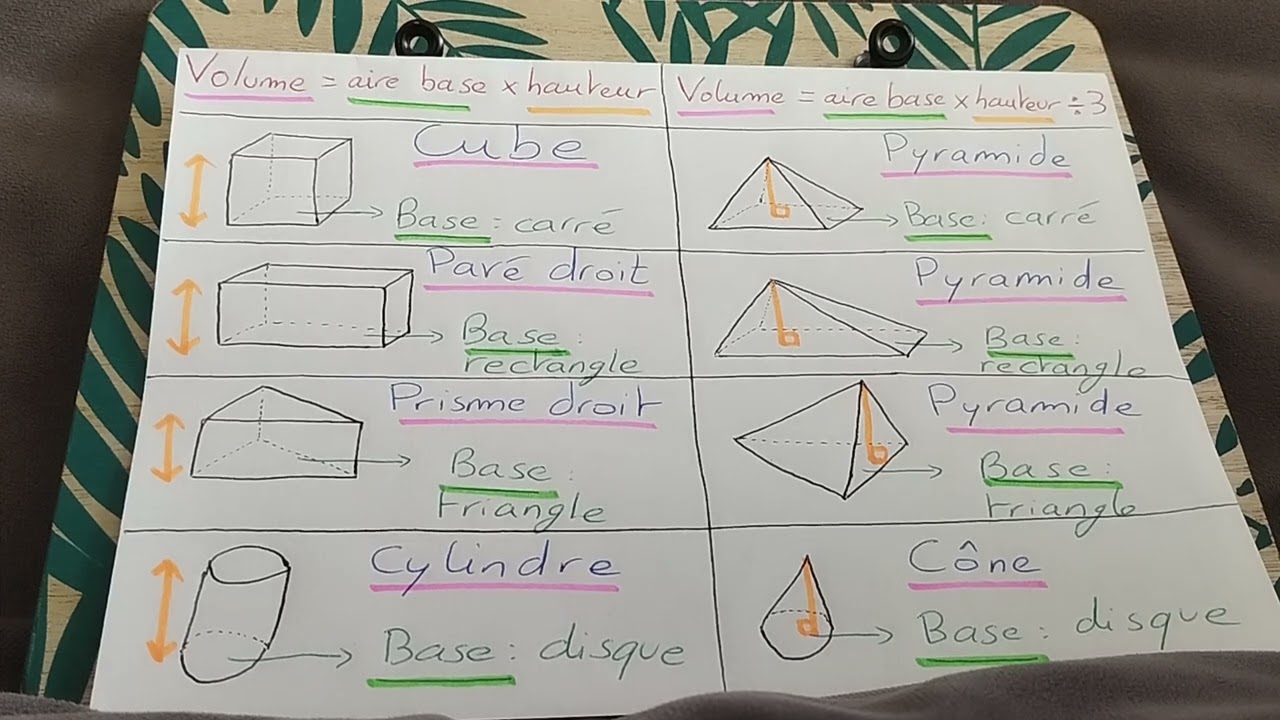 Volume = aire base × hauteur
Volume = aire base × hauteur ÷ 3
Cube
Base : carré
Pyramide
Base : carré
Pavé droit
Base :
rectangle
Pyramide
Base :
rectangle
Prisme droit
Base :
triangle
Pyramide
Base :
triangle
Cylindre
Base : disque
Cône
Base : disque